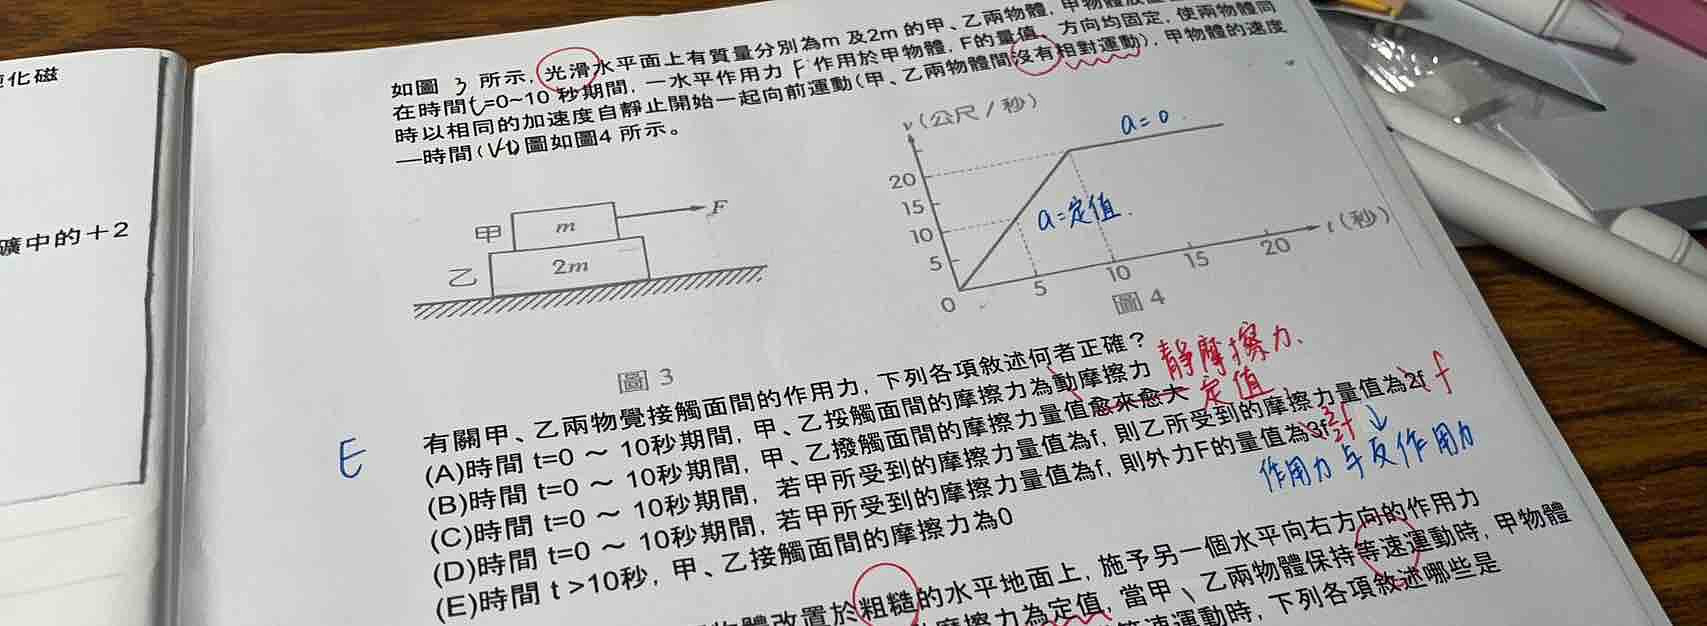 化磁
礦中的+2
如圖 3 所示,光滑水平面上有質量分別為m 及2m 的甲、乙兩物體,
在時間t=0~10 秒期間,一水平作用力 F 作用於甲物體,F的量值、方向均固定,使兩物體同
時以相同的加速度自靜止開始一起向前運動(甲、乙兩物體間沒有相對運動),甲物體的速度
—時間(V-t)圖如圖4 所示。
甲 m F
乙 2m
圖 3
v(公尺/秒)
20
15
10
5
0 5 10 15 20 t(秒)
圖 4
a=0
a=定值.
有關甲、乙兩物覺接觸面間的作用力,下列各項敘述何者正確?
E
(A)時間 t=0 ~ 10秒期間,甲、乙挼觸面間的摩擦力為動摩擦力 靜摩擦力.
(B)時間 t=0 ~ 10秒期間,甲、乙撥觸面間的摩擦力量值愈來愈大 定值
(C)時間 t=0 ~ 10秒期間,若甲所受到的摩擦力量值為f,則乙所受到的摩擦力量值為2f f
(D)時間 t=0 ~ 10秒期間,若甲所受到的摩擦力量值為f,則外力F的量值為3f
作用力与反作用力
(E)時間 t >10秒,甲、乙接觸面間的摩擦力為0
體改置於粗糙的水平地面上,施予另一個水平向右方向的作用力
摩擦力為定值,當甲、乙兩物體保持等速運動時,甲物體
速運動時,下列各項敘述哪些是